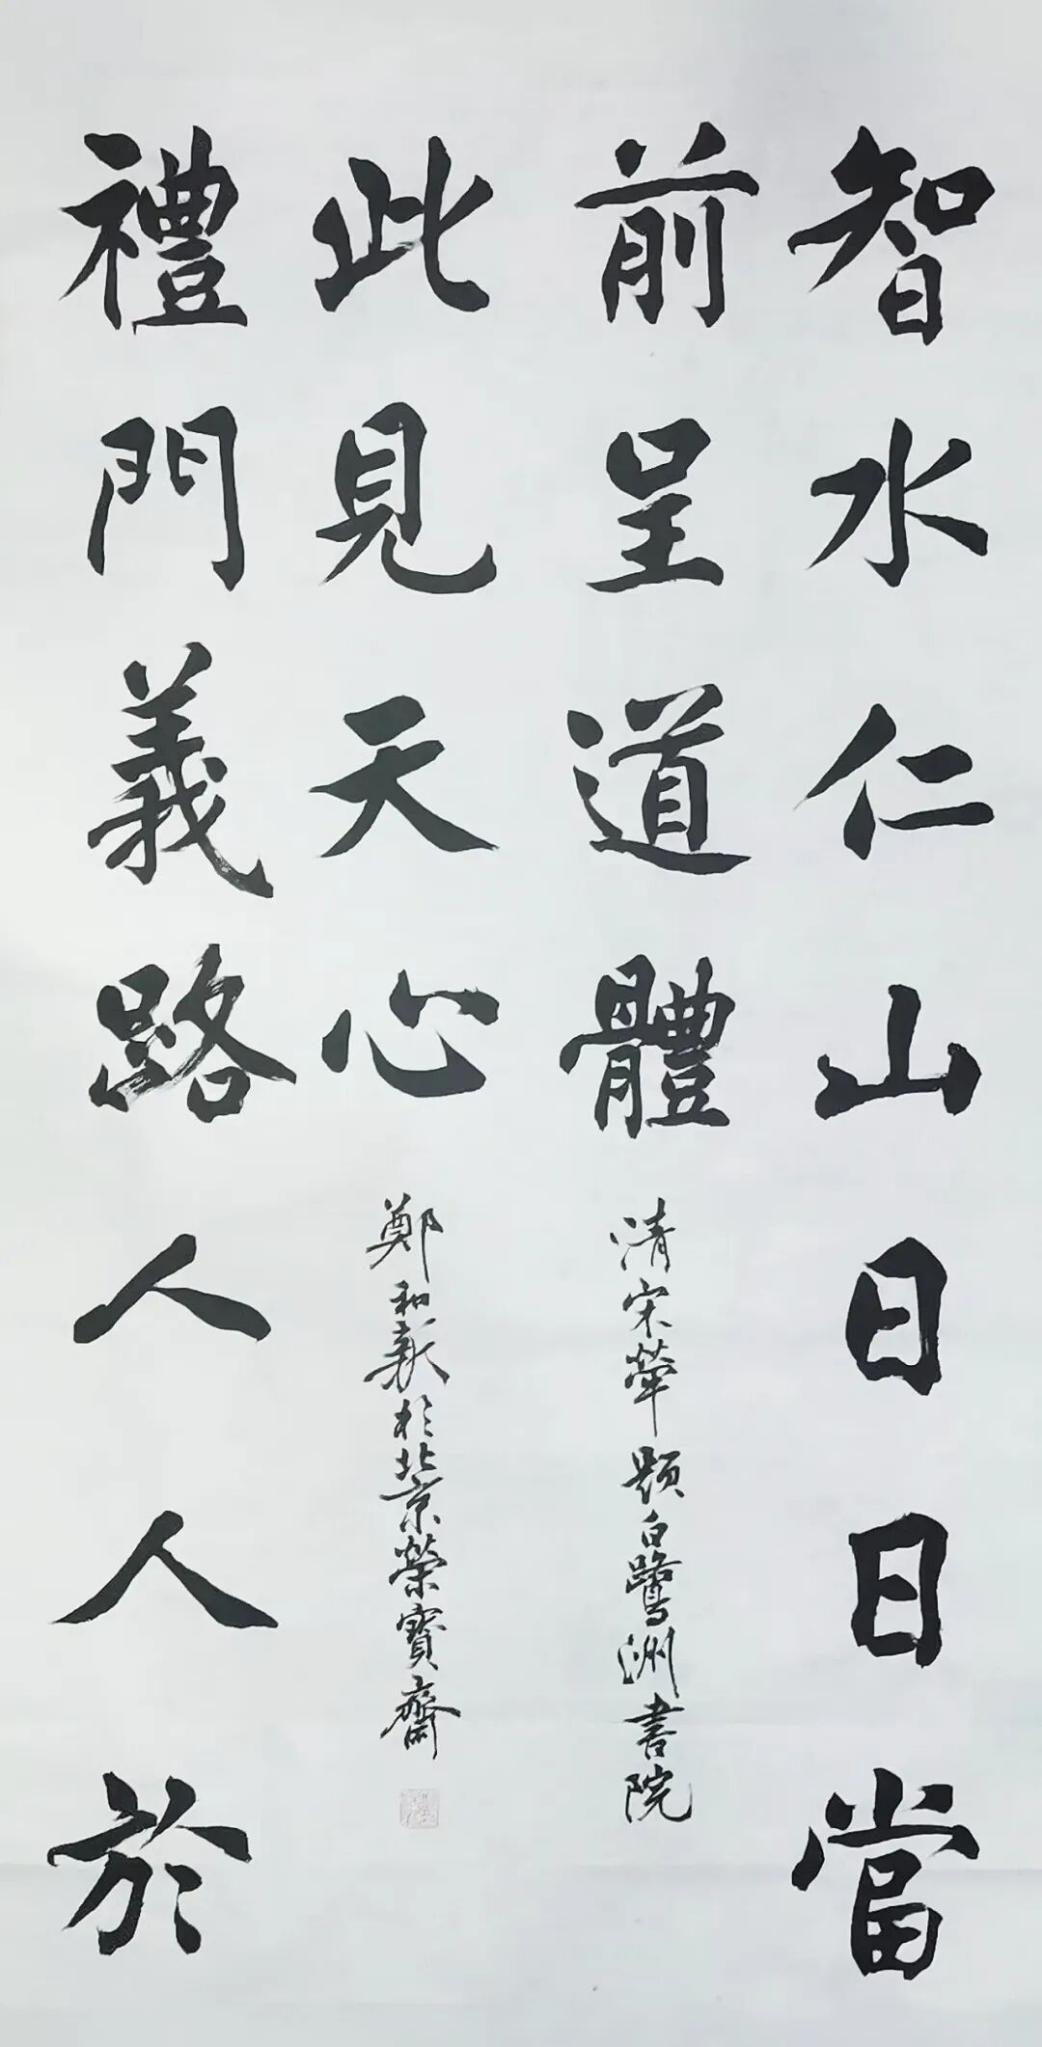 智水仁山日日當
前呈道體
清宋犖題白鷺洲書院
禮門義路人人於
此見天心
鄭和新於北京榮寶齋